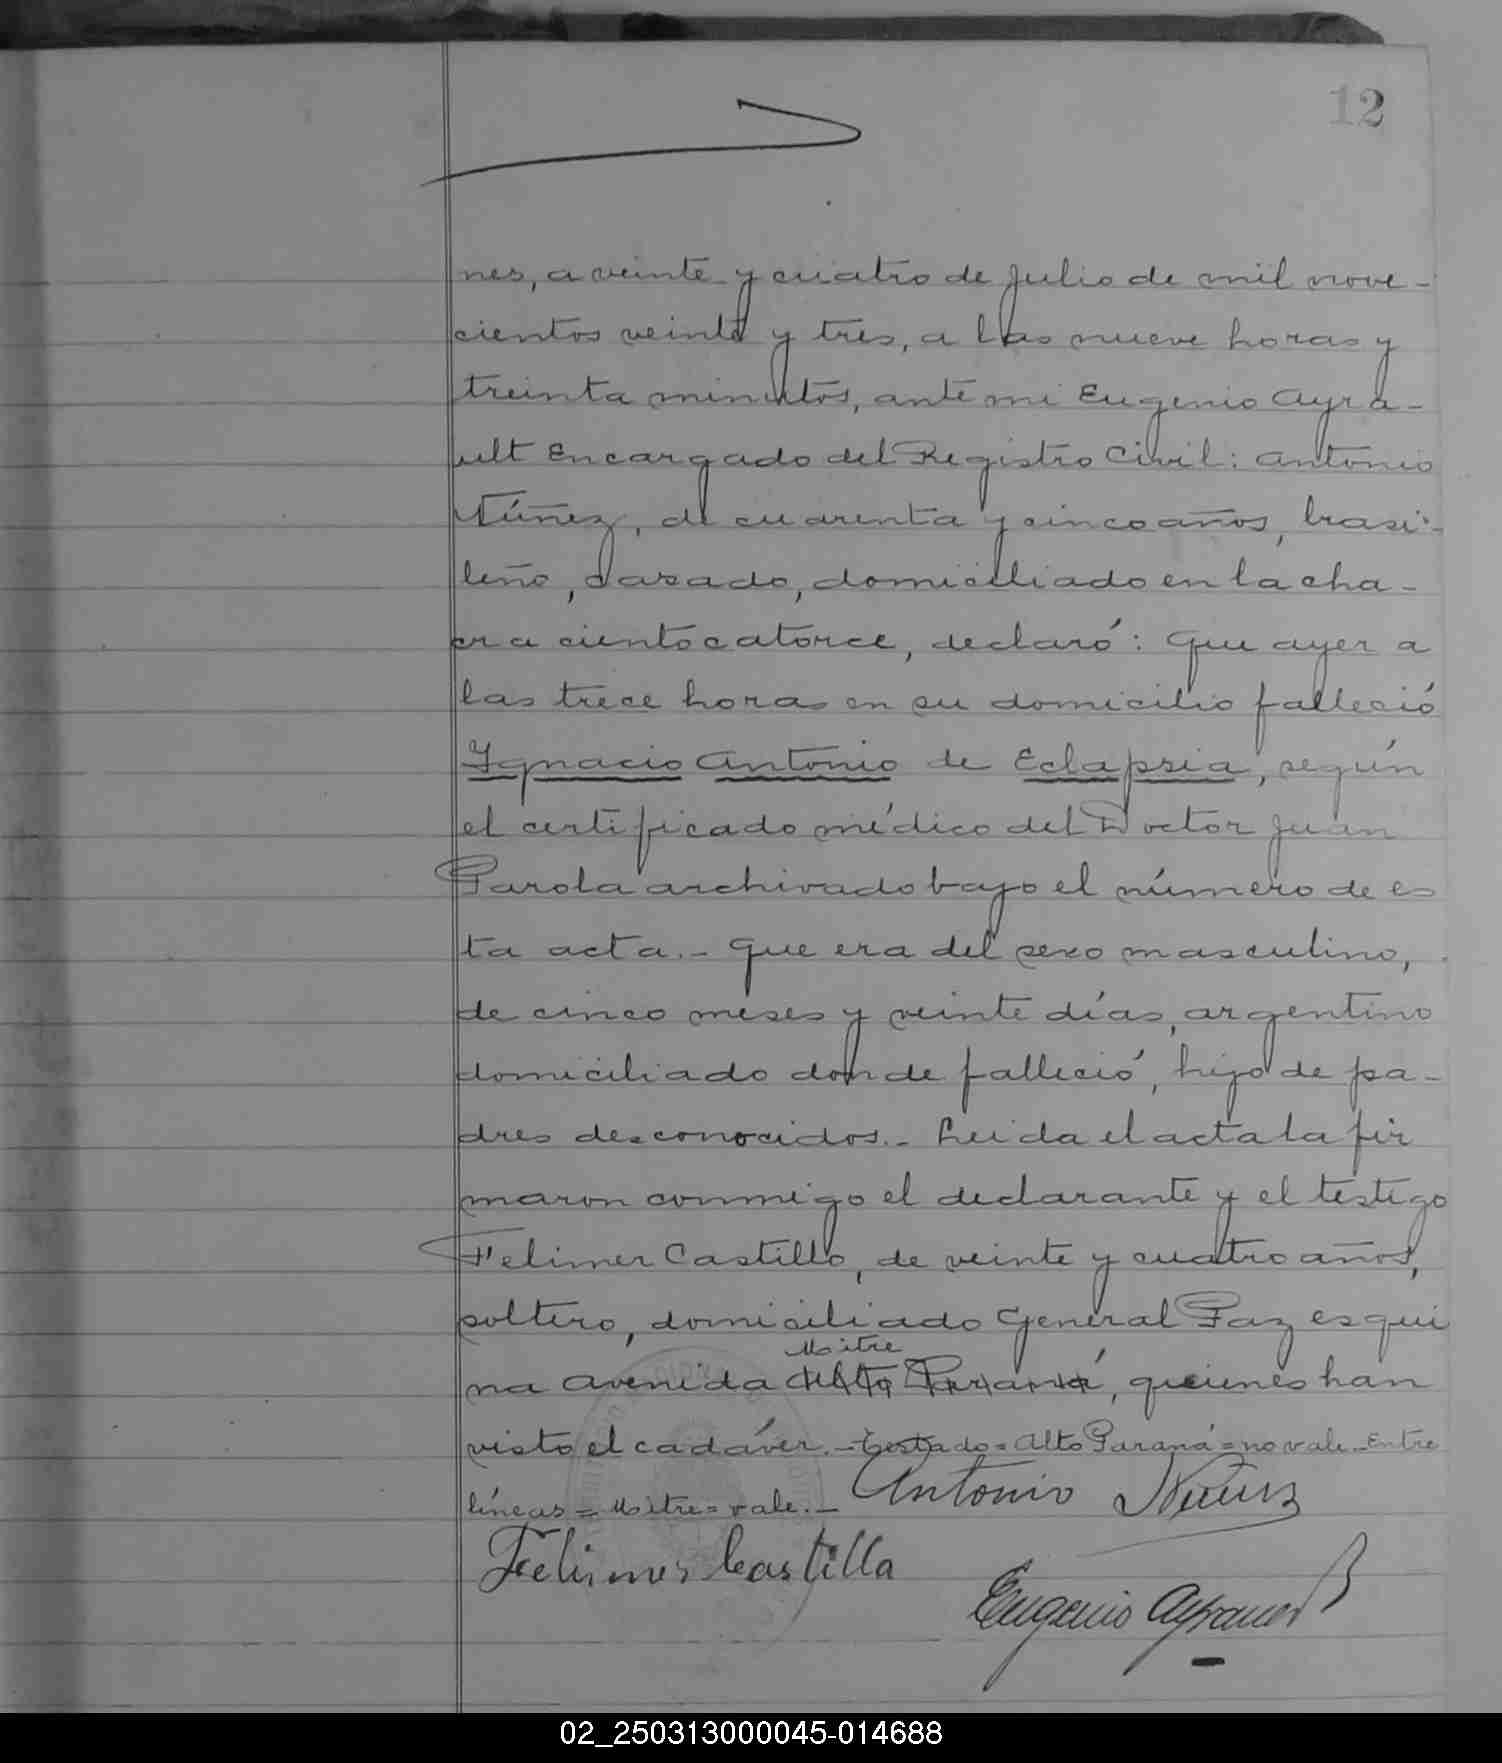 12
nes, a veinte y cuatro de Julio de mil nove-
cientos veinte y tres, a las nueve horas y
treinta minutos, ante mi Eugenio Ayra-
ult Encargado del Registro Civil: Antonio
Núñez, de cuarenta y cinco años, brasi-
leño, casado, domiciliado en la cha-
cra ciento catorce, declaró: Que ayer a
las trece horas en su domicilio falleció
Ignacio Antonio de Eclapsia, según
el certificado médico del Doctor Juan
Parola archivado bajo el número de es
ta acta.- Que era del sexo masculino,
de cinco meses y veinte días, argentino
domiciliado donde falleció, hijo de pa-
dres desconocidos.- Leida el acta la fir
maron conmigo el declarante y el testigo
Felimer Castillo, de veinte y cuatro años,
soltero, domiciliado General Paz esqui
Mitre
na avenida Alto Paraná, quienes han
visto el cadáver.- Testado=Alto Paraná=no vale-Entre
líneas=Mitre=vale.- Antonio Nuñez
Felimer Castilla
Eugenio Ayrault
02_250313000045-014688